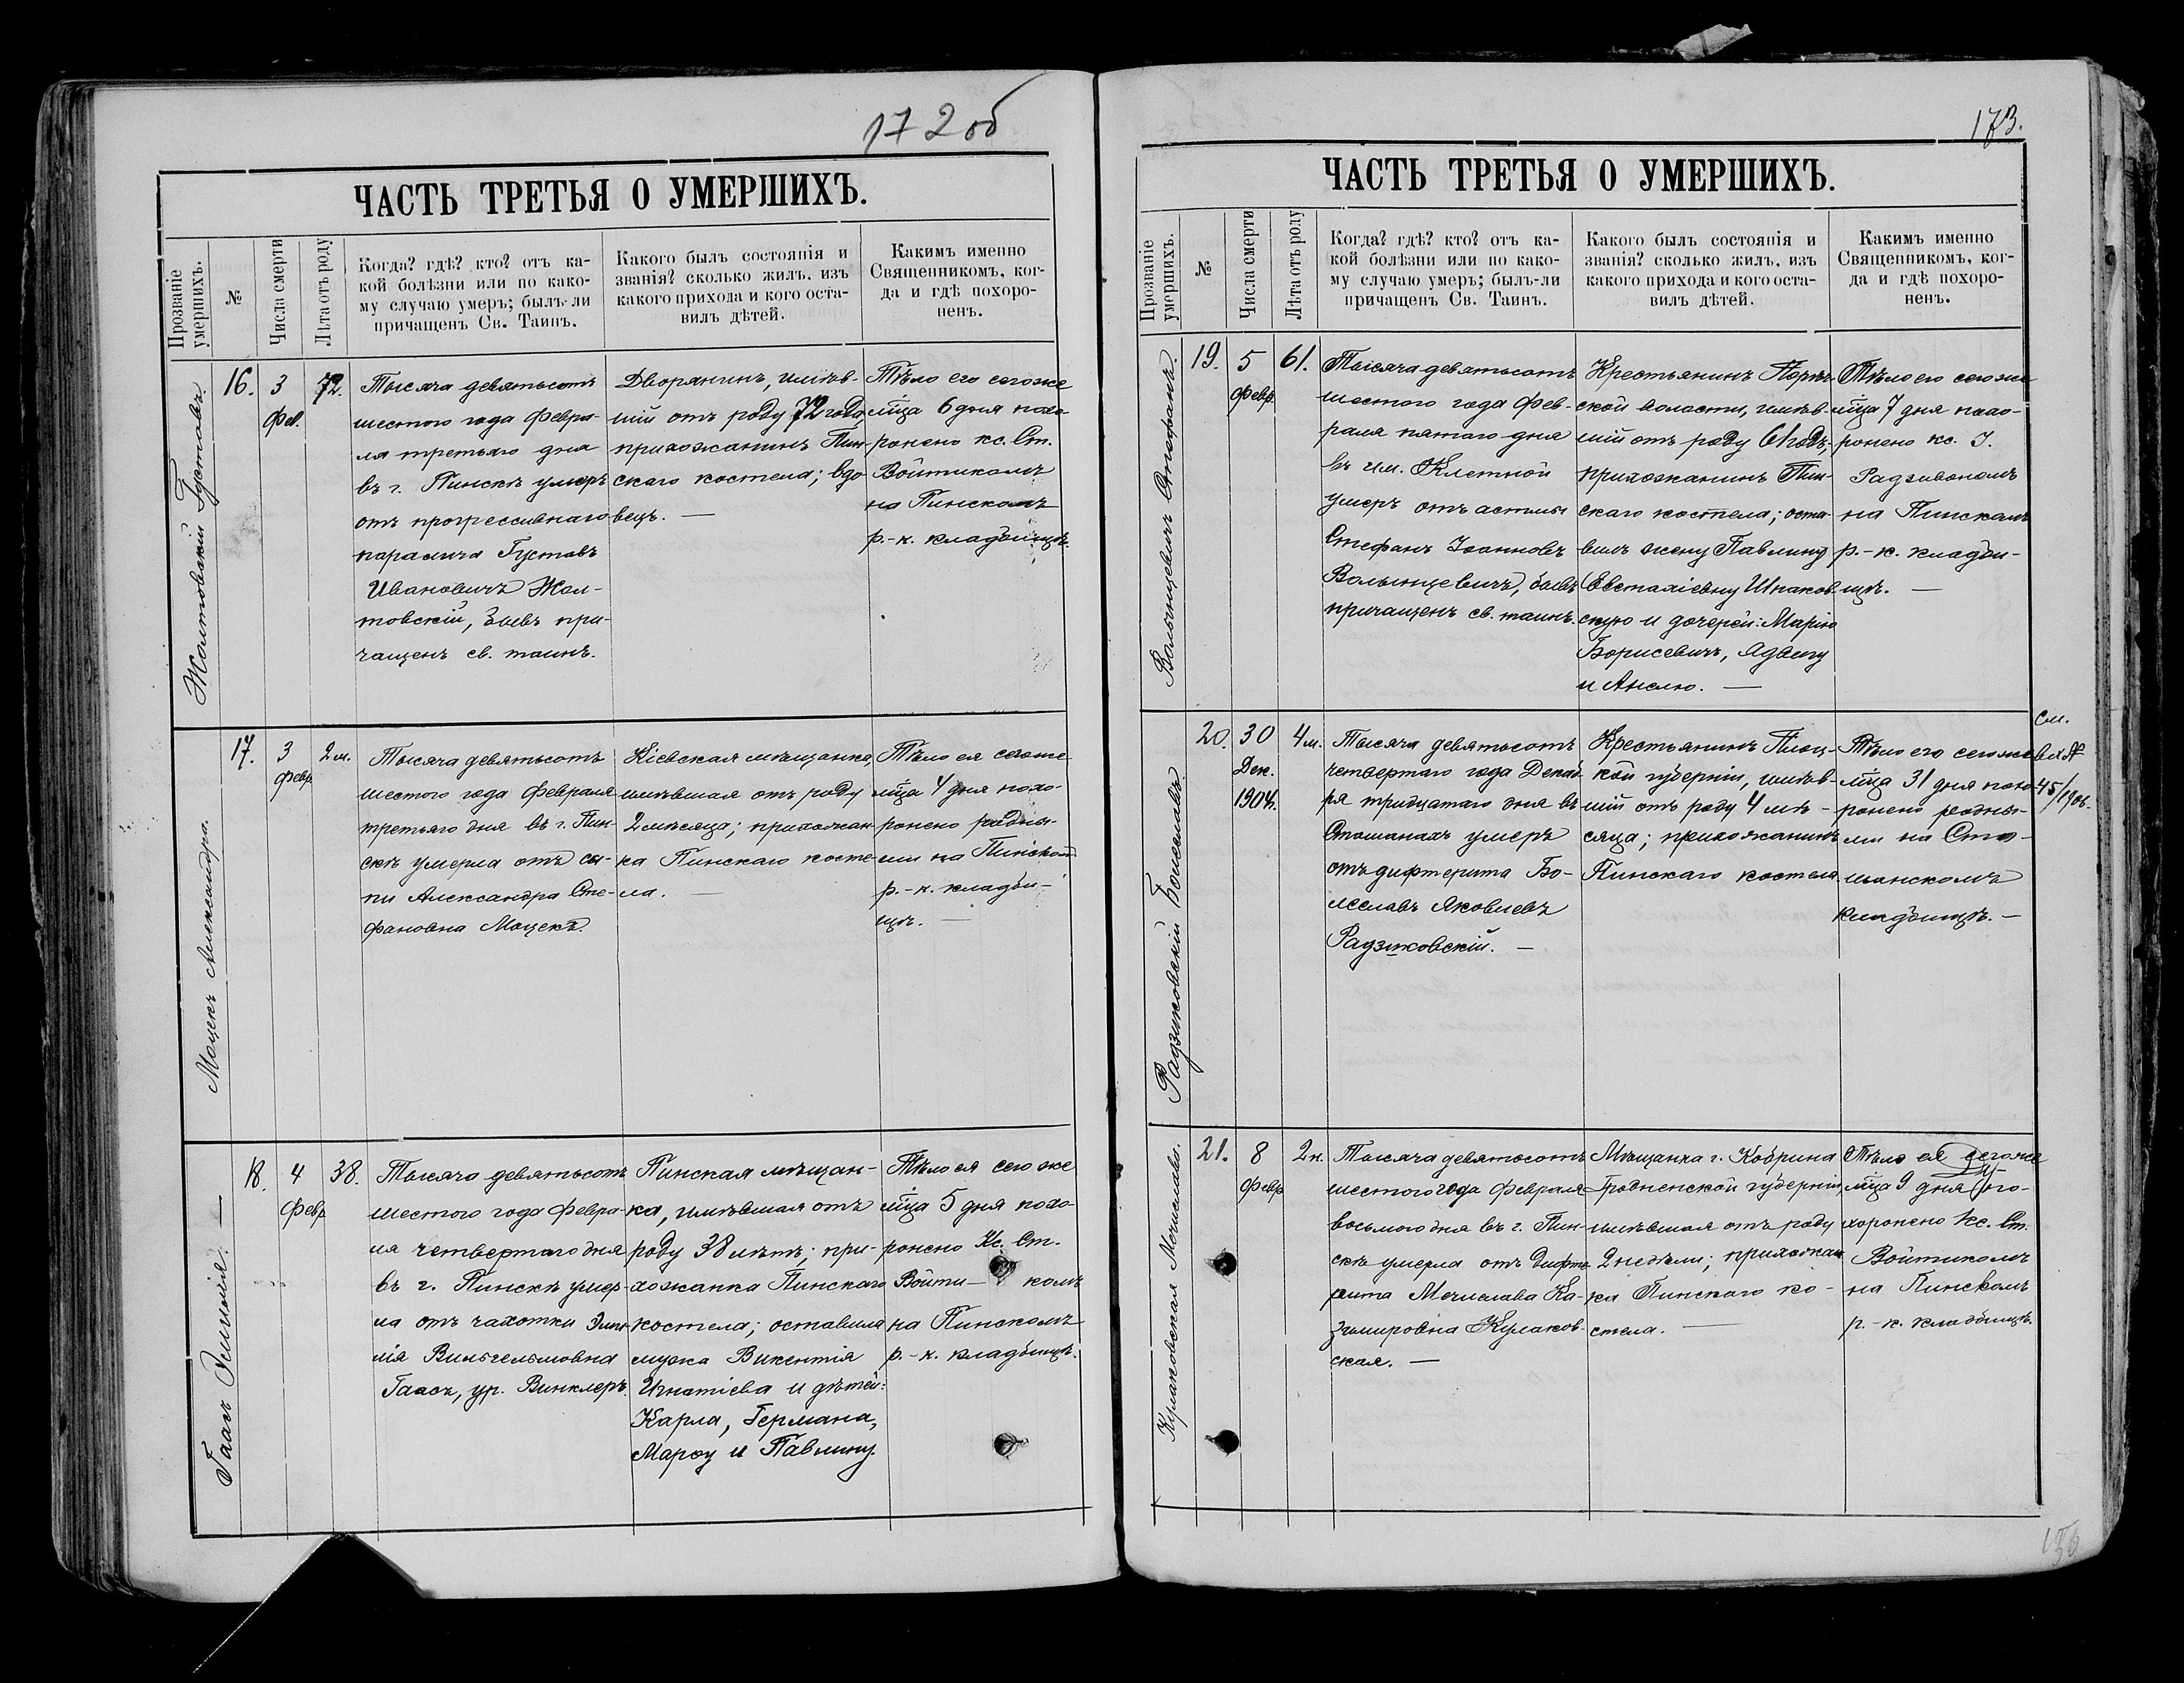 172об
ЧАСТЬ ТРЕТЬЯ О УМЕРШИХЪ.
Прозваніе умершихъ.
№
Числа смерти
Лѣта отъ роду
Когда? гдѣ? кто? отъ ка-
кой болѣзни или по како-
му случаю умеръ; былъ-ли
причащенъ Св. Таинъ.
Какого былъ состоянія и
званія? сколько жилъ, изъ
какого прихода и кого оста-
вилъ дѣтей.
Какимъ именно
Священникомъ, ког-
да и гдѣ похоро-
ненъ.
Жолтовскій Густавъ
16.
3
Фев.
72.
Тысяча девятьсотъ
шестого года Февра-
ля третьяго дня
въ г. Пинскѣ умеръ
отъ прогрессивнаго
паралича Густавъ
Ивановичъ Жол-
товскій, бывъ при-
чащенъ св. таинъ.
Дворянинъ, имѣв-
шій отъ роду 72 года,
прихожанинъ Пин-
скаго костела; вдо
вецъ. —
Тѣло его сегоже
мѣца 6 дня похо
ронено кс. Ст.
Войтикомъ
на Пинскомъ
р.-к. кладбищѣ.
Моцекъ Александра.
17.
3
февр
2 м.
Тысяча девятьсотъ
шестого года Февраля
третьяго дня въ г. Пин-
скѣ умерла отъ сы-
пи Александра Сте-
фановна Моцекъ.
Кіевская мѣщанка,
имѣвшая отъ роду
2 мѣсяца; прихожан-
ка Пинскаго косте-
ла. —
Тѣло ея сегоже
мѣца 4 дня похо-
ронено родны-
ми на Пинском
р.-к. кладби-
щѣ. —
Гаасъ Эмилія. —
18.
4
Февр
38.
Тысяча девятьсотъ
шестого года Февра-
ля четвертаго дня
въ г. Пинскѣ умер-
ла отъ чахотки Эми-
лія Вильгельмовна
Гаасъ, ур. Винклеръ.
Пинская мѣщан-
ка, имѣвшая отъ
роду 38 лѣтъ; при-
хожанка Пинскаго
костела; оставила
мужа Викентія
Игнатіева и дѣтей:
Карла, Германа,
Марѳу и Павлину.
Тѣло ея сего же
мѣца 5 дня похо-
ронено Кс. Ст.
Войти- комъ
на Пинскомъ
р.-к. кладбищѣ.
173.
ЧАСТЬ ТРЕТЬЯ О УМЕРШИХЪ.
Прозваніе умершихъ.
№
Числа смерти
Лѣта отъ роду
Когда? гдѣ? кто? отъ ка-
кой болѣзни или по како-
му случаю умеръ; былъ-ли
причащенъ Св. Таинъ.
Какого былъ состоянія и
званія? сколько жилъ, изъ
какого прихода и кого оста-
вилъ дѣтей.
Какимъ именно
Священникомъ, ког-
да и гдѣ похоро-
ненъ.
Волынцевичъ Стефанъ.
19.
5
Февр
61.
Тысяча девятьсотъ
шестого года Фев-
раля пятаго дня
въ им. Клетной
умеръ отъ астмы
Стефанъ Іоанновъ
Волынцевичъ, бывъ
причащенъ св. таинъ.
Крестьянинъ Порѣч-
ской волости, имѣв-
шій отъ роду 61 годъ;
прихожанинъ Пин-
скаго костела; оста-
вилъ жену Павлину
Евстахіевну Шпаков-
скую и дочерей: Марію
Борисевичъ, Ядвигу
и Анелю. —
Тѣло его сегоже
мѣца 7 дня похо-
ронено кс. І.
Радзивономъ
на Пинскомъ
р.-к. кладби-
щѣ. —
Радзиковскій Болеславъ
20.
30
Дек.
1904.
4 м.
Тысяча девятьсотъ
четвертаго года Декаб
ря тридцатаго дня въ
Стошанахъ умеръ
отъ дифтерита Бо-
леславъ Яковлевъ
Радзиковскій. —
Крестьянинъ Плоц-
кой губерніи, имѣв-
шій отъ роду 4 мѣ-
сяца; прихожанинъ
Пинскаго костела.
Тѣло его сегоже
мѣца 31 дня похо
ронено родны-
ми на Сто-
шанскомъ
кладбищѣ. —
см.
вх №
45/1906.
Кулаковская Мечислава.
21.
8
Февр
2 н.
Тысяча девятьсотъ
шестого года Февраля
восьмого дня въ г. Пин-
скѣ умерла отъ дифте-
рита Мечислава Ка-
зимировна Кулаков-
ская. —
Мѣщанка г. Кобрина
Гродненской губерніи,
имѣвшая отъ роду
2 недѣли; прихожан
ка Пинскаго ко-
стела. —
Тѣло ея сегоже
мѣца 9 дня по-
хоронено Кс. Ст.
Войтикомъ
на Пинскомъ
р.-к. кладбищѣ.